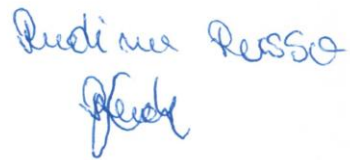 Rudina Russo